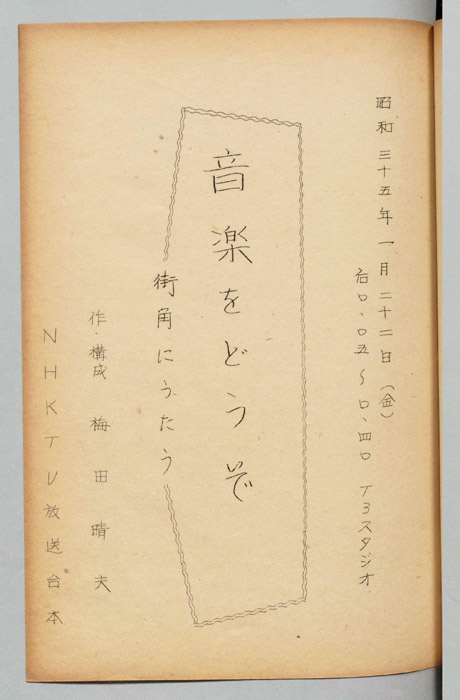 昭和三十五年一月二十二日（金）
后〇、〇五～〇、四〇 T3スタジオ
音楽をどうぞ
街角にうたう
作・構成 梅田晴夫
NHKTV放送台本